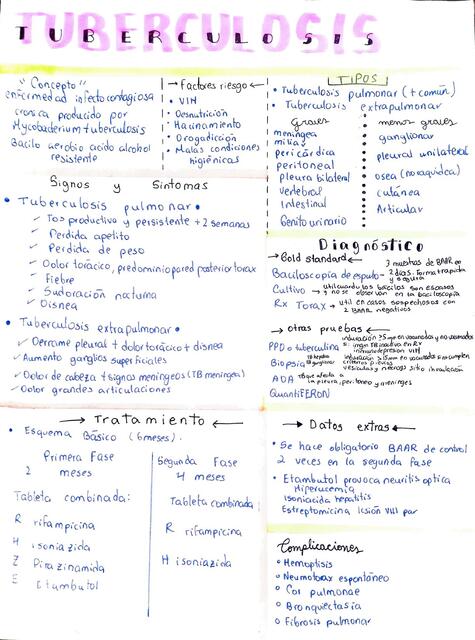 TUBERCULOSIS
"Concepto"
enfermedad infectocontagiosa
cronica producido por
Mycobacterium tuberculosis
Bacilo aerobio acido alcohol
resistente
Factores riesgo
• VIH
• Desnutrición
• Hacinamiento
• Drogadicción
• Malas condiciones
higiénicas
TIPOS
• Tuberculosis pulmonar (+ común)
• Tuberculosis extrapulmonar
Graves
meningea
miliar
pericárdica
peritoneal
pleura bilateral
vertebral
Intestinal
Genitourinario
menos graves
ganglionar
pleural unilateral
osea (no raquidea)
cutánea
Articular
Signos y Sintomas
• Tuberculosis pulmonar •
✓ Tos productivo y persistente + 2 semanas
✓ Perdida apetito
✓ Perdida de peso
✓ Dolor torácico, predominio pared posterior torax
✓ Fiebre
✓ Sudoración nocturna
✓ Disnea
• Tuberculosis extrapulmonar •
✓ Derrame pleural + dolor torácico + disnea
✓ Aumento ganglios superficiales
✓ Dolor de cabeza + signos meningeos (TB meningea)
✓ Dolor grandes articulaciones
Diagnóstico
Gold standard
Baciloscopia de esputo - 3 muestras de BAAR en
2 dias. Forma rapida
y segura
Cultivo → utilizando los bacilos son escasos
y no se observan en la baciloscopia
Rx Torax → util en casos sospechosos con
2 BAAR negativos
otras pruebas
PPD o tuberculina
Biopsia
ADA TB que afecta a
la pleura, peritoneo y meninges
QuantiFERON
Tratamiento
• Esquema Básico (6 meses).
Primera Fase
2 meses
Tableta combinada:
R rifampicina
H isoniazida
Z Pirazinamida
E Etambutol
Segunda Fase
4 meses
Tableta combinada
R rifampicina
H isoniazida
Datos extras
• Se hace obligatorio BAAR de control
2 veces en la segunda fase
• Etambutol provoca neuritis optica
Hiperucemia
Isoniacida hepatitis
Estreptomicina lesión VIII par
Complicaciones
• Hemoptisis
• Neumotorax espontáneo
• Cor pulmonae
• Bronquiectasia
• Fibrosis pulmonar